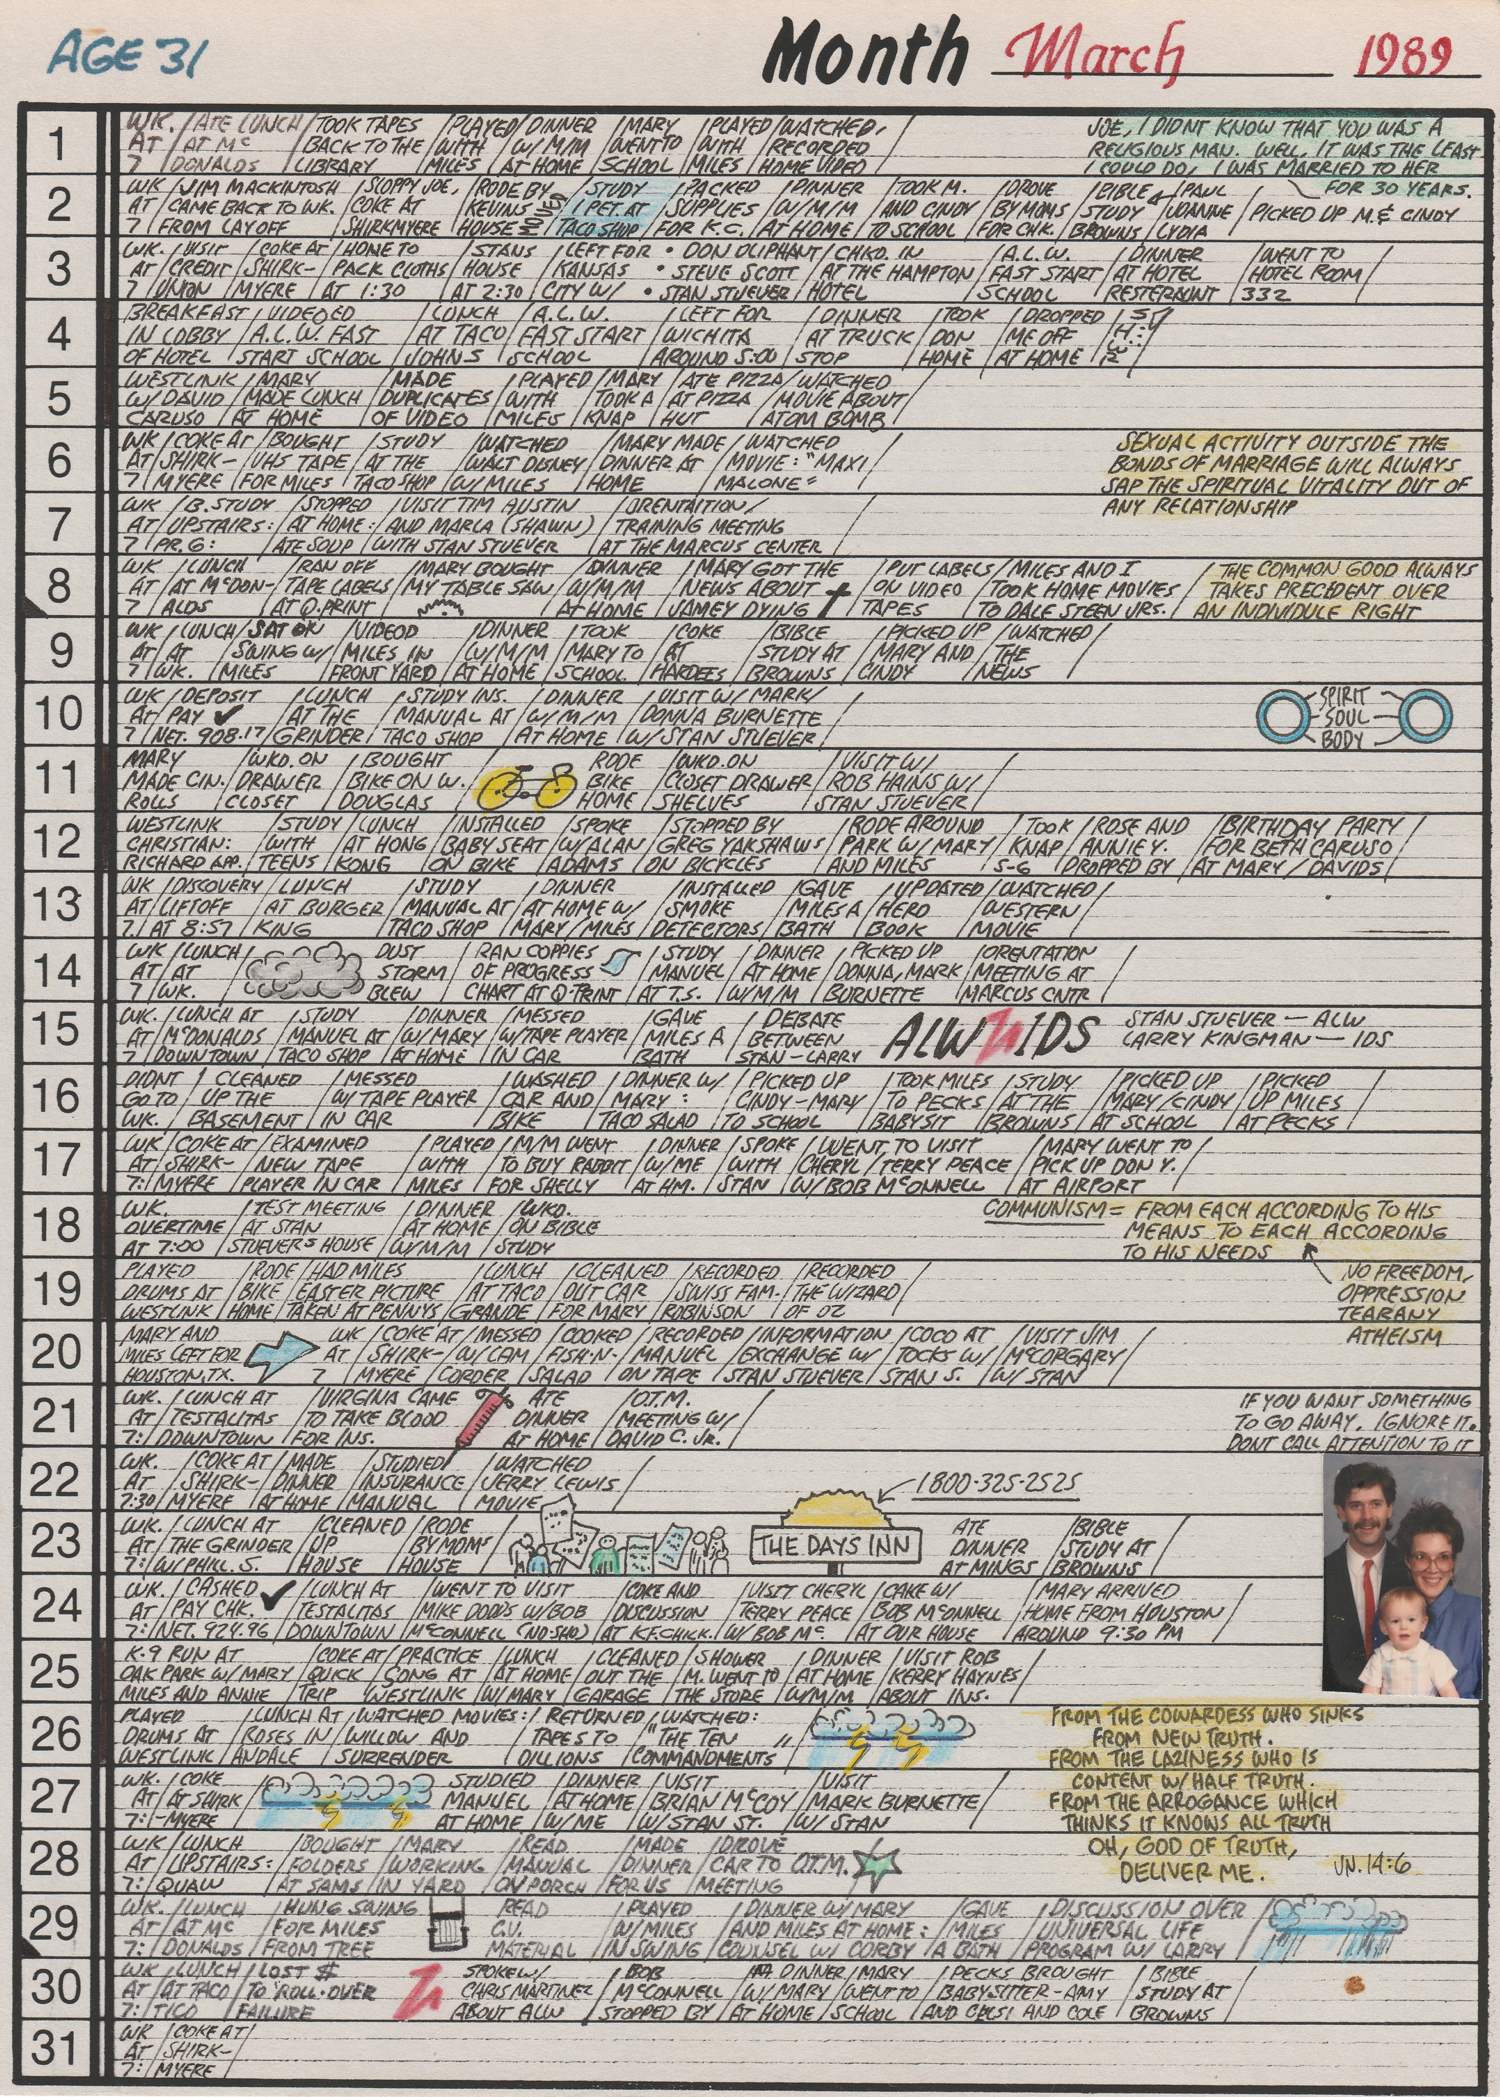 AGE 31
Month March 1989
1
WK. AT 7
ATE LUNCH AT Mc DONALDS
TOOK TAPES BACK TO THE LIBRARY
PLAYED WITH MILES
DINNER W/M/M AT HOME
MARY WENT TO SCHOOL
PLAYED WITH MILES
WATCHED, RECORDED HOME VIDEO
JOE, I DIDNT KNOW THAT YOU WAS A
RELIGIOUS MAN. WELL, IT WAS THE LEAST
I COULD DO, I WAS MARRIED TO HER
FOR 30 YEARS.
2
WK AT 7
JIM MACKINTOSH CAME BACK TO WK. FROM LAYOFF
SLOPPY JOE, COKE AT SHIRKMYERE
RODE BY KEVINS HOUSE
STUDY 1 PET. AT TACO SHOP
PACKED SUPPLIES FOR K.C.
DINNER W/M/M AT HOME
TOOK M. AND CINDY TO SCHOOL
DROVE BY MOMS FOR CHK.
BIBLE STUDY BROWNS
PAUL JOANNE LYDIA
PICKED UP M. & CINDY
3
WK. AT 7
VISIT CREDIT UNION
COKE AT SHIRK-MYERE
HOME TO PACK CLOTHS AT 1:30
STANS HOUSE AT 2:30
LEFT FOR KANSAS CITY W/
• DON OLIPHANT
• STEVE SCOTT
• STAN STUEVER
CHKD. IN AT THE HAMPTON HOTEL
A.L.W. FAST START SCHOOL
DINNER AT HOTEL RESTERAUNT
WENT TO HOTEL ROOM 332
4
BREAKFAST IN LOBBY OF HOTEL
VIDEOED A.L.W. FAST START SCHOOL
LUNCH AT TACO JOHNS
A.L.W. FAST START SCHOOL
LEFT FOR WICHITA AROUND 5:00
DINNER AT TRUCK STOP
TOOK DON HOME
DROPPED ME OFF AT HOME
5
WESTLINK W/DAVID CARUSO
MARY MADE LUNCH AT HOME
MADE DUPLICATES OF VIDEO
PLAYED WITH MILES
MARY TOOK A KNAP
ATE PIZZA AT PIZZA HUT
WATCHED MOVIE ABOUT ATOM BOMB
6
WK AT 7
COKE AT SHIRK-MYERE
BOUGHT VHS TAPE FOR MILES
STUDY AT THE TACO SHOP
WATCHED WALT DISNEY W/MILES
MARY MADE DINNER AT HOME
WATCHED MOVIE: "MAXI MALONE"
SEXUAL ACTIVITY OUTSIDE THE
BONDS OF MARRIAGE WILL ALWAYS
SAP THE SPIRITUAL VITALITY OUT OF
ANY RELATIONSHIP
7
WK AT 7
B. STUDY UPSTAIRS: PR. 6:
STOPPED AT HOME: ATE SOUP
VISIT TIM AUSTIN AND MARLA (SHAWN) WITH STAN STUEVER
ORENTAITION/ TRAINING MEETING AT THE MARCUS CENTER
8
WK AT 7
LUNCH AT McDON-ALDS
RAN OFF TAPE LABELS AT Q. PRINT
MARY BOUGHT MY TABLE SAW
DINNER W/M/M AT HOME
MARY GOT THE NEWS ABOUT JAMEY DYING
PUT LABELS ON VIDEO TAPES
MILES AND I TOOK HOME MOVIES TO DALE STEEN JRS.
THE COMMON GOOD ALWAYS
TAKES PRECEDENT OVER
AN INDIVIDULE RIGHT
9
WK AT 7
LUNCH AT WK.
SAT ON SWING W/ MILES
VIDEOD MILES IN FRONT YARD
DINNER W/M/M AT HOME
TOOK MARY TO SCHOOL
COKE AT HARDEES
BIBLE STUDY AT BROWNS
PICKED UP MARY AND CINDY
WATCHED THE NEWS
10
WK AT 7
DEPOSIT PAY ✓ NET. 908.17
LUNCH AT THE GRINDER
STUDY INS. MANUAL AT TACO SHOP
DINNER W/M/M AT HOME
VISIT W/ MARK/ DONNA BURNETTE W/ STAN STUEVER
SPIRIT
SOUL
BODY
11
MARY MADE CIN. ROLLS
WKD. ON DRAWER CLOSET
BOUGHT BIKE ON W. DOUGLAS
RODE BIKE HOME
WKD. ON CLOSET DRAWER SHELVES
VISIT W/ ROB HAINS W/ STAN STUEVER
12
WESTLINK CHRISTIAN: RICHARD APP.
STUDY WITH TEENS
LUNCH AT HONG KONG
INSTALLED BABY SEAT ON BIKE
SPOKE W/ALAN ADAMS
STOPPED BY GREG YAKSHAWS ON BICYCLES
RODE AROUND PARK W/ MARY AND MILES
TOOK KNAP 5-6
ROSE AND ANNIE Y. DROPPED BY
BIRTHDAY PARTY FOR BETH CARUSO AT MARY/DAVIDS
13
WK AT 7
DISCOVERY LIFTOFF AT 8:57
LUNCH AT BURGER KING
STUDY MANUAL AT TACO SHOP
DINNER AT HOME W/ MARY/MILES
INSTALLED SMOKE DETECTORS
GAVE MILES A BATH
UPDATED HERO BOOK
WATCHED WESTERN MOVIE
14
WK AT 7
LUNCH AT WK.
DUST STORM BLEW
RAN COPPIES OF PROGRESS CHART AT Q-PRINT
STUDY MANUEL AT T.S.
DINNER AT HOME W/M/M
PICKED UP DONNA, MARK BURNETTE
ORENTATION MEETING AT MARCUS CNTR
15
WK. AT 7
LUNCH AT McDONALDS DOWNTOWN
STUDY MANUEL AT TACO SHOP
DINNER W/MARY AT HOME
MESSED W/TAPE PLAYER IN CAR
GAVE MILES A BATH
DEBATE BETWEEN STAN-LARRY
ALW IDS
STAN STUEVER — ALW
LARRY KINGMAN — IDS
16
DIDNT GO TO WK.
CLEANED UP THE BASEMENT
MESSED W/TAPE PLAYER IN CAR
WASHED CAR AND BIKE
DINNER W/ MARY: TACO SALAD
PICKED UP CINDY-MARY TO SCHOOL
TOOK MILES TO PECKS BABYSIT
STUDY AT THE BROWNS
PICKED UP MARY/CINDY AT SCHOOL
PICKED UP MILES AT PECKS
17
WK AT 7:
COKE AT SHIRK-MYERE
EXAMINED NEW TAPE PLAYER IN CAR
PLAYED WITH MILES
M/M WENT TO BUY RABBIT FOR SHELLY
DINNER W/ME AT HM.
SPOKE WITH STAN
WENT TO VISIT CHERYL/TERRY PEACE W/BOB McCONNELL
MARY WENT TO PICK UP DON Y. AT AIRPORT
18
WK. OVERTIME AT 7:00
TEST MEETING AT STAN STUEVERS HOUSE
DINNER AT HOME W/M/M
WKD. ON BIBLE STUDY
COMMUNISM = FROM EACH ACCORDING TO HIS
MEANS TO EACH ACCORDING
TO HIS NEEDS
NO FREEDOM,
OPPRESSION
TEARANY
ATHEISM
19
PLAYED DRUMS AT WESTLINK
RODE BIKE HOME
HAD MILES EASTER PICTURE TAKEN AT PENNYS
LUNCH AT TACO GRANDE
CLEANED OUT CAR FOR MARY
RECORDED SWISS FAM. ROBINSON
RECORDED THE WIZARD OF OZ
20
MARY AND MILES LEFT FOR HOUSTON, TX.
WK AT 7
COKE AT SHIRK-MYERE
MESSED W/CAM CORDER
COOKED FISH-N-SALAD
RECORDED MANUEL ON TAPE
INFORMATION EXCHANGE W/ STAN STUEVER
COCO AT TOCKS W/ STAN S.
VISIT JIM McCORGARY W/ STAN
21
WK. AT 7:
LUNCH AT TESTALITAS DOWNTOWN
VIRGINA CAME TO TAKE BLOOD FOR INS.
ATE DINNER AT HOME
O.T.M. MEETING W/ DAVID C. JR.
IF YOU WANT SOMETHING
TO GO AWAY, IGNORE IT.
DONT CALL ATTENTION TO IT
22
WK. AT 7:30
COKE AT SHIRK-MYERE
MADE DINNER AT HOME
STUDIED INSURANCE MANUAL
WATCHED JERRY LEWIS MOVIE
1800-325-2525
23
WK. AT 7:
LUNCH AT THE GRINDER W/PHILL. S.
CLEANED UP HOUSE
RODE BY MOMS HOUSE
THE DAYS INN
ATE DINNER AT MINGS
BIBLE STUDY AT BROWNS
24
WK. AT 7:
CASHED PAY CHK. ✓ NET. 924.96
LUNCH AT TESTALITAS DOWNTOWN
WENT TO VISIT MIKE DODDS W/BOB McCONNELL (NO-SHO)
COKE AND DISCUSSION AT K.F.CHICK.
VISIT CHERYL TERRY PEACE W/ BOB Mc.
CAKE W/ BOB McCONNELL AT OUR HOUSE
MARY ARRIVED HOME FROM HOUSTON AROUND 9:30 PM
25
K-9 RUN AT OAK PARK W/MARY MILES AND ANNIE
COKE AT QUICK TRIP
PRACTICE SONG AT WESTLINK
LUNCH AT HOME W/MARY
CLEANED OUT THE GARAGE
SHOWER M. WENT TO THE STORE
DINNER AT HOME W/M/M
VISIT ROB KERRY HAYNES ABOUT INS.
26
PLAYED DRUMS AT WESTLINK
LUNCH AT ROSES IN ANDALE
WATCHED MOVIES: WILLOW AND SURRENDER
RETURNED TAPES TO DILLIONS
WATCHED: "THE TEN COMMANDMENTS"
FROM THE COWARDESS WHO SINKS
FROM NEW TRUTH.
FROM THE LAZINESS WHO IS
CONTENT W/ HALF TRUTH.
FROM THE ARROGANCE WHICH
THINKS IT KNOWS ALL TRUTH
OH, GOD OF TRUTH,
DELIVER ME.
JN. 14:6
27
WK. AT 7:
COKE AT SHIRK-MYERE
STUDIED MANUEL AT HOME
DINNER AT HOME W/ME
VISIT BRIAN McCOY W/STAN ST.
VISIT MARK BURNETTE W/ STAN
28
WK AT 7:
LUNCH UPSTAIRS: QUAW
BOUGHT FOLDERS AT SAMS
MARY WORKING IN YARD
READ MANUAL ON PORCH
MADE DINNER FOR US
DROVE CAR TO O.T.M. MEETING
29
WK. AT 7:
LUNCH AT Mc DONALDS
HUNG SWING FOR MILES FROM TREE
READ G.V. MATERIAL
PLAYED W/MILES IN SWING
DINNER W/ MARY AND MILES AT HOME: COUNSEL W/ CORBY
GAVE MILES A BATH
DISCUSSION OVER UNIVERSAL LIFE PROGRAM W/ LARRY
30
WK AT 7:
LUNCH AT TACO TICO
LOST $ TO ROLL-OVER FAILURE
SPOKE W/ CHRIS MARTINEZ ABOUT ALW
BOB McCONNELL STOPPED BY
DINNER W/ MARY AT HOME
MARY WENT TO SCHOOL
PECKS BROUGHT BABYSITTER-AMY AND CELSI AND COLE
BIBLE STUDY AT BROWNS
31
WK AT 7:
COKE AT SHIRK-MYERE